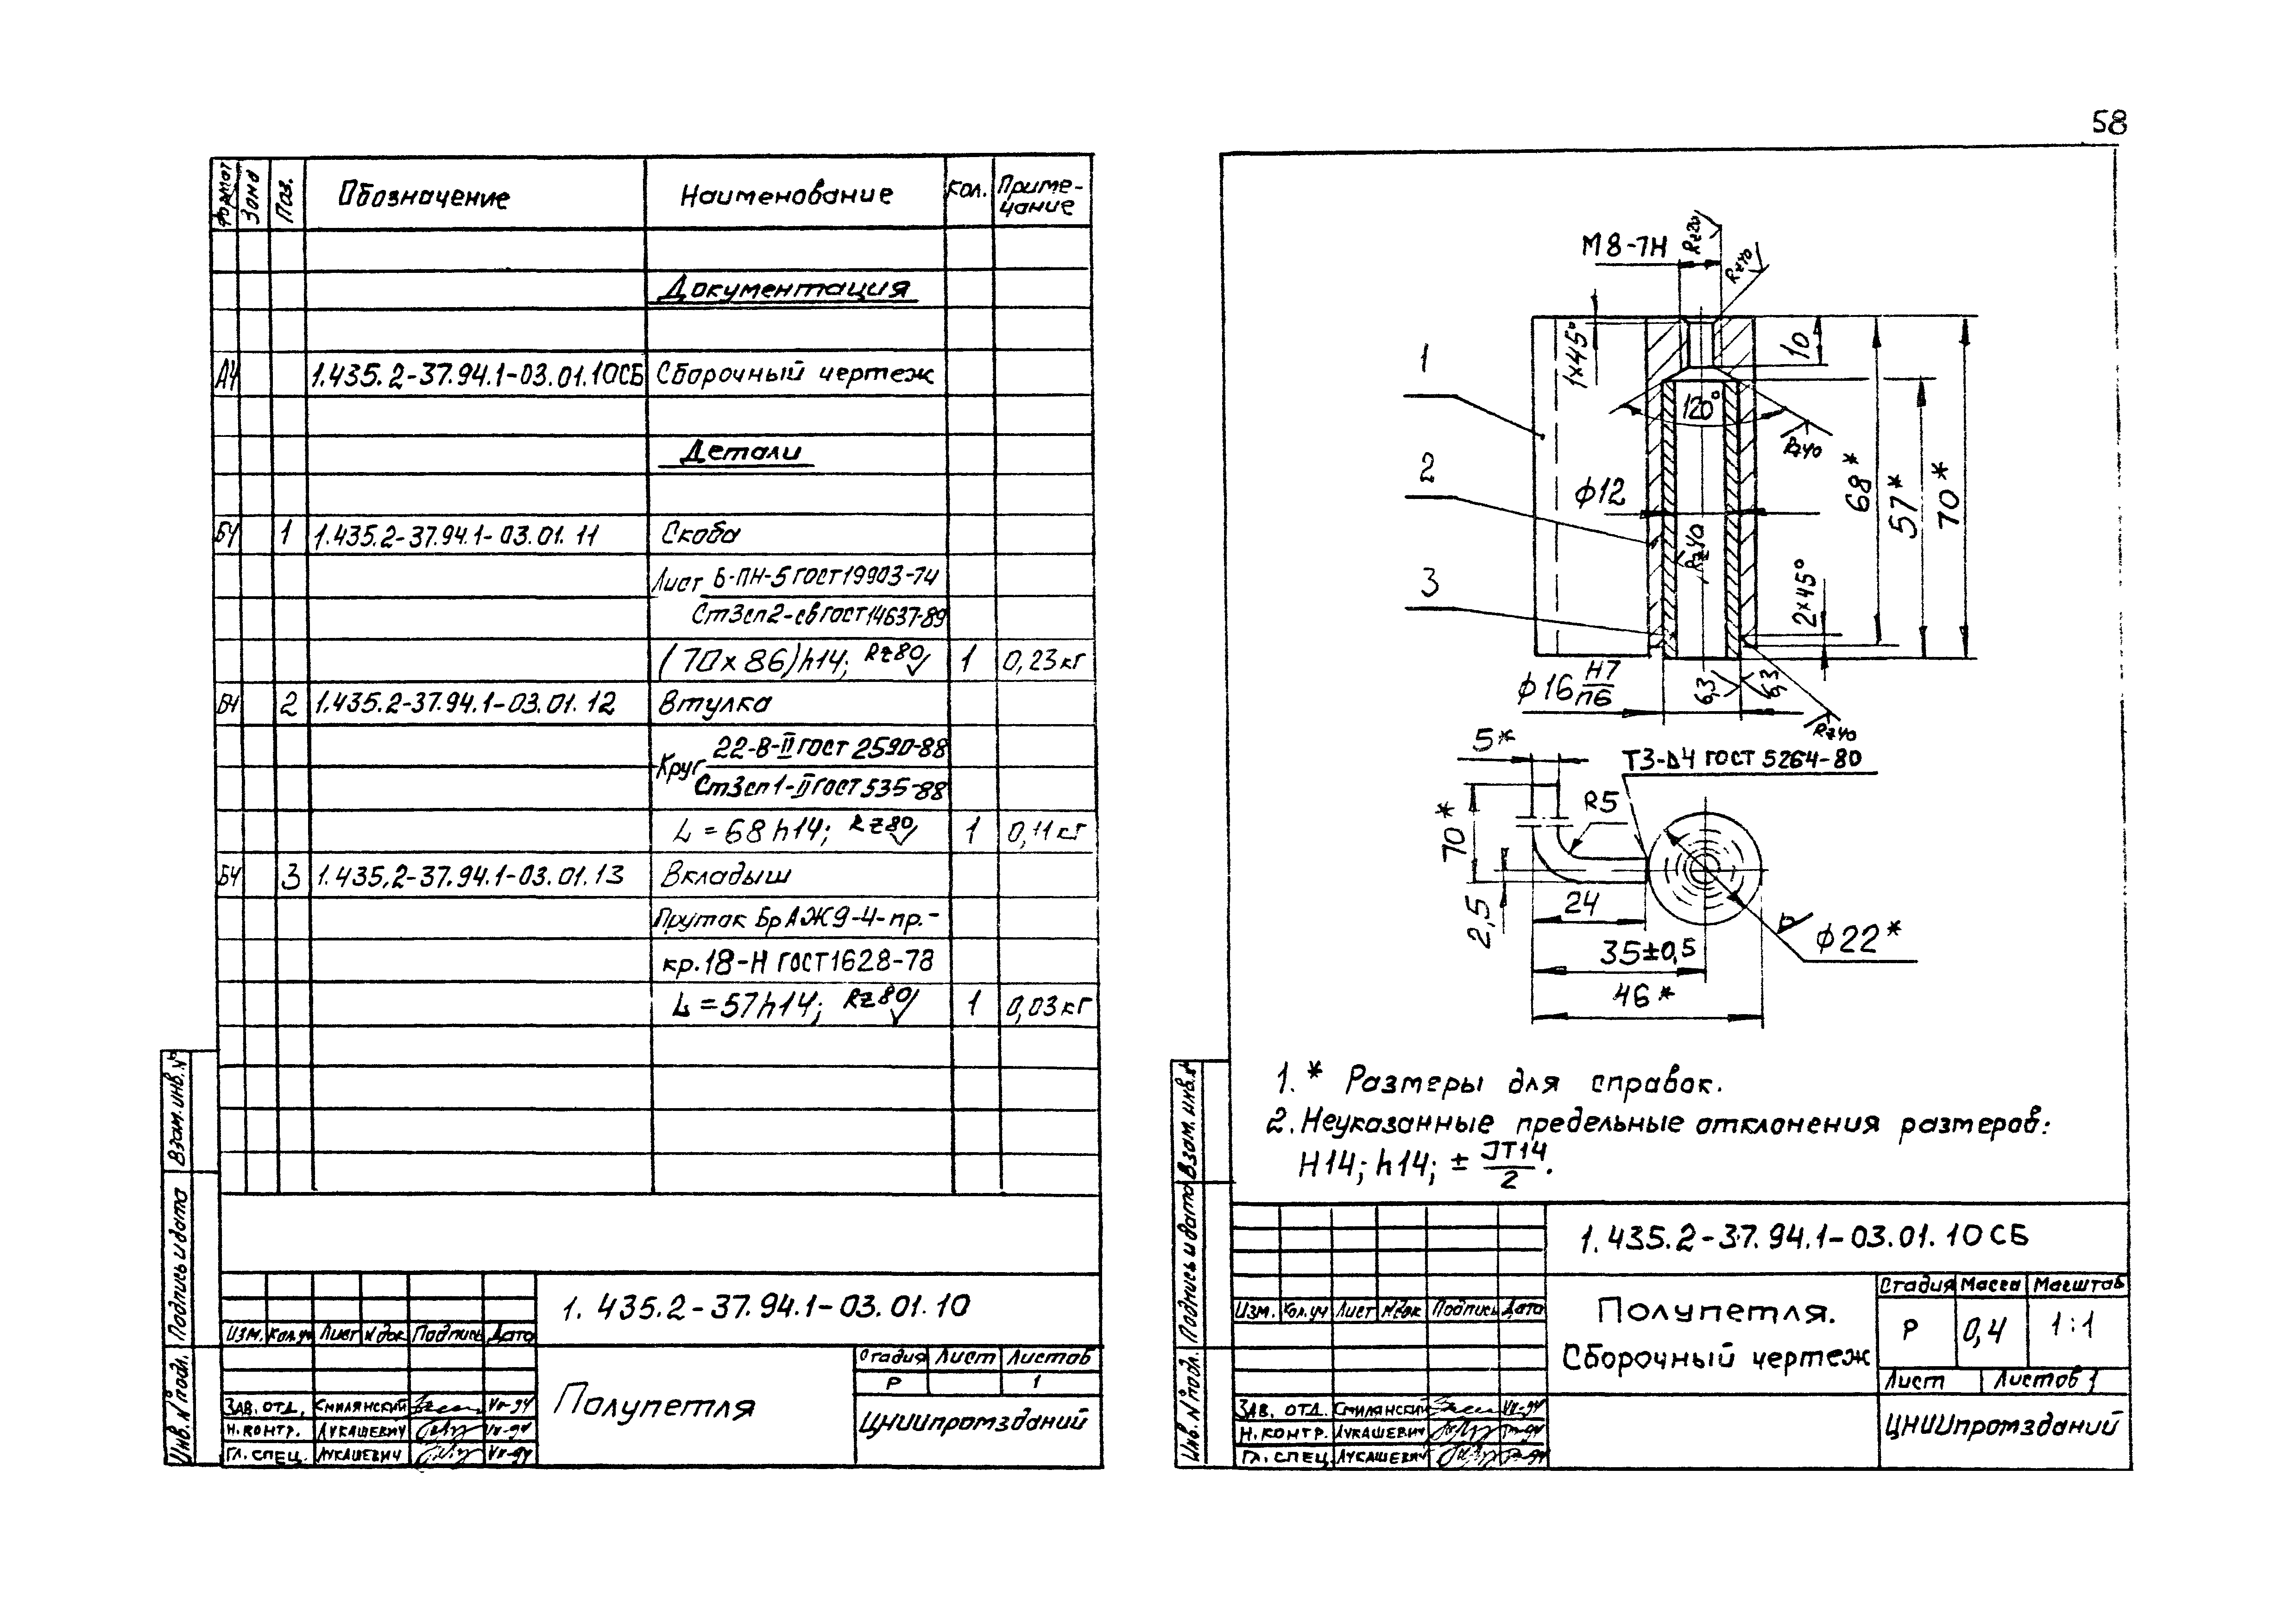 58
Формат Зона Поз. Обозначение Наименование Кол. Приме-
чание
Документация
А4 1.435.2-37.94.1-03.01.10СБ Сборочный чертеж
Детали
БЧ 1 1.435.2-37.94.1-03.01.11 Скоба
Лист Б-ПН-5 ГОСТ 19903-74
Ст3сп2-св ГОСТ 14637-89
(70х86)h14; Rz80 1 0,23кг
БЧ 2 1.435.2-37.94.1-03.01.12 Втулка
Круг 22-В-II ГОСТ 2590-88
Ст3сп1-II ГОСТ 535-88
L=68h14; Rz80 1 0,11кг
БЧ 3 1.435.2-37.94.1-03.01.13 Вкладыш
Пруток БрАЖ9-4-пр.-
кр.18-Н ГОСТ1628-78
L=57h14; Rz80 1 0,03кг
Взам.инв.№
Подпись и дата
Инв.№подл.
1.435.2-37.94.1-03.01.10
Изм. Кол.уч Лист №док Подпись Дата
Стадия Лист Листов
Р 1
Полупетля
ЦНИИпромзданий
Зав. отд. Смилянский VII-94
Н.контр. Лукашевич VII-94
Гл.спец. Лукашевич VII-94
М8-7Н
Rz20
Rz40
1х45°
10
120°
Rz40
1
2
3
ф12
Rz40
68*
57*
70*
2х45°
ф16 Н7/п6
6,3
6,3
Rz40
5*
Т3-⊿4 ГОСТ 5264-80
70*
R5
2,5
24
35±0,5
46*
ф22*
1.* Размеры для справок.
2.Неуказанные предельные отклонения размеров:
Н14; h14; ± JT14/2.
Взам.инв.№
Подпись и дата
Инв.№подл.
1.435.2-37.94.1-03.01.10СБ
Изм. Кол.уч Лист №док Подпись Дата
Полупетля.
Сборочный чертеж
Стадия Масса Масштаб
Р 0,4 1:1
Лист Листов 1
ЦНИИпромзданий
Зав. отд. Смилянский VII-94
Н.контр. Лукашевич
Гл.спец. Лукашевич